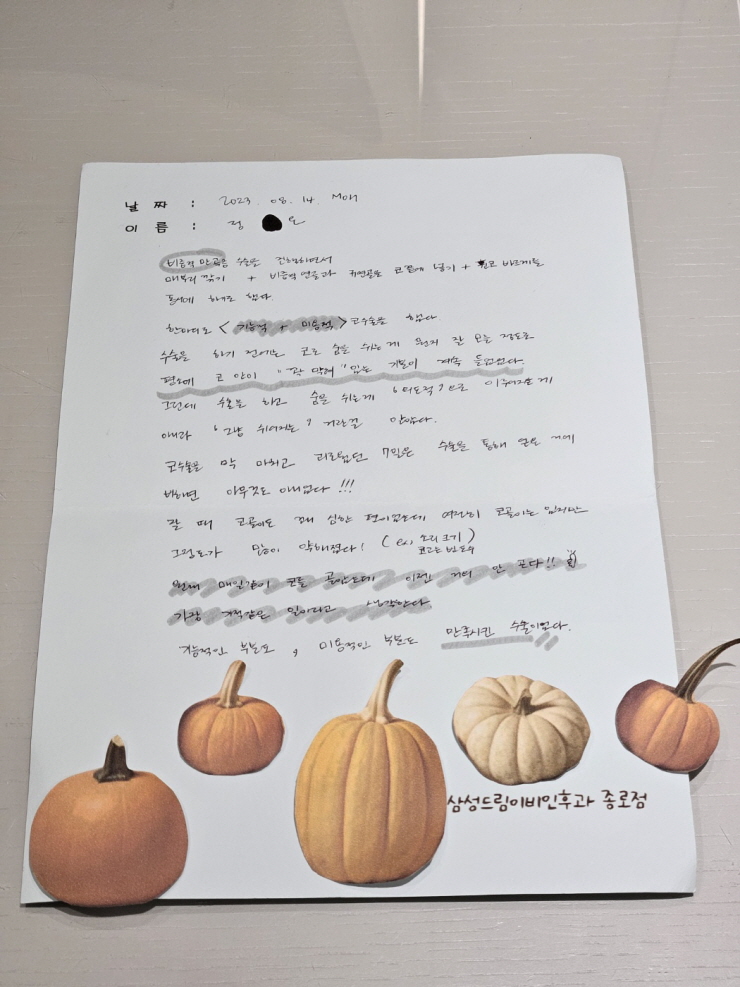 날 짜 : 2023. 08. 14. MON
이 름 : 정 요
비중격 만곡증 수술을 진행하면서
매부리 깎기 + 비중격 연골과 귀연골로 코 끝에 넣기 + 코 바르게를
동시에 하기로 했다.
한마디로 <기능적 + 미용적> 코수술을 했다
수술을 하기 전에는 코로 숨을 쉬는게 뭔지 잘 모를 정도로
평소에 코 안이 "꽉 막혀" 있는 기분이 계속 들었었다.
그런데 수술을 하고 숨을 쉬는게 '의도적'으로 이루어지는게
아니라 '그냥 쉬어지는' 거라는걸 알았다.
코수술을 막 마치고 괴로웠던 7일은 수술을 통해 얻은 거에
비하면 아무것도 아니었다!!!
잘 때 코골이도 꽤 심한 편이었는데 여전히 코골이는 있지만
그정도가 많이 약해졌다! (ex, 소리 크기
코고는 빈도수)
원래 매일같이 코를 골았는데 이젠 거의 안 곤다!!
가장 기적같은 일이라고 생각한다.
기능적인 부분도, 미용적인 부분도 만족시킨 수술이었다.
삼성드림이비인후과 종로점